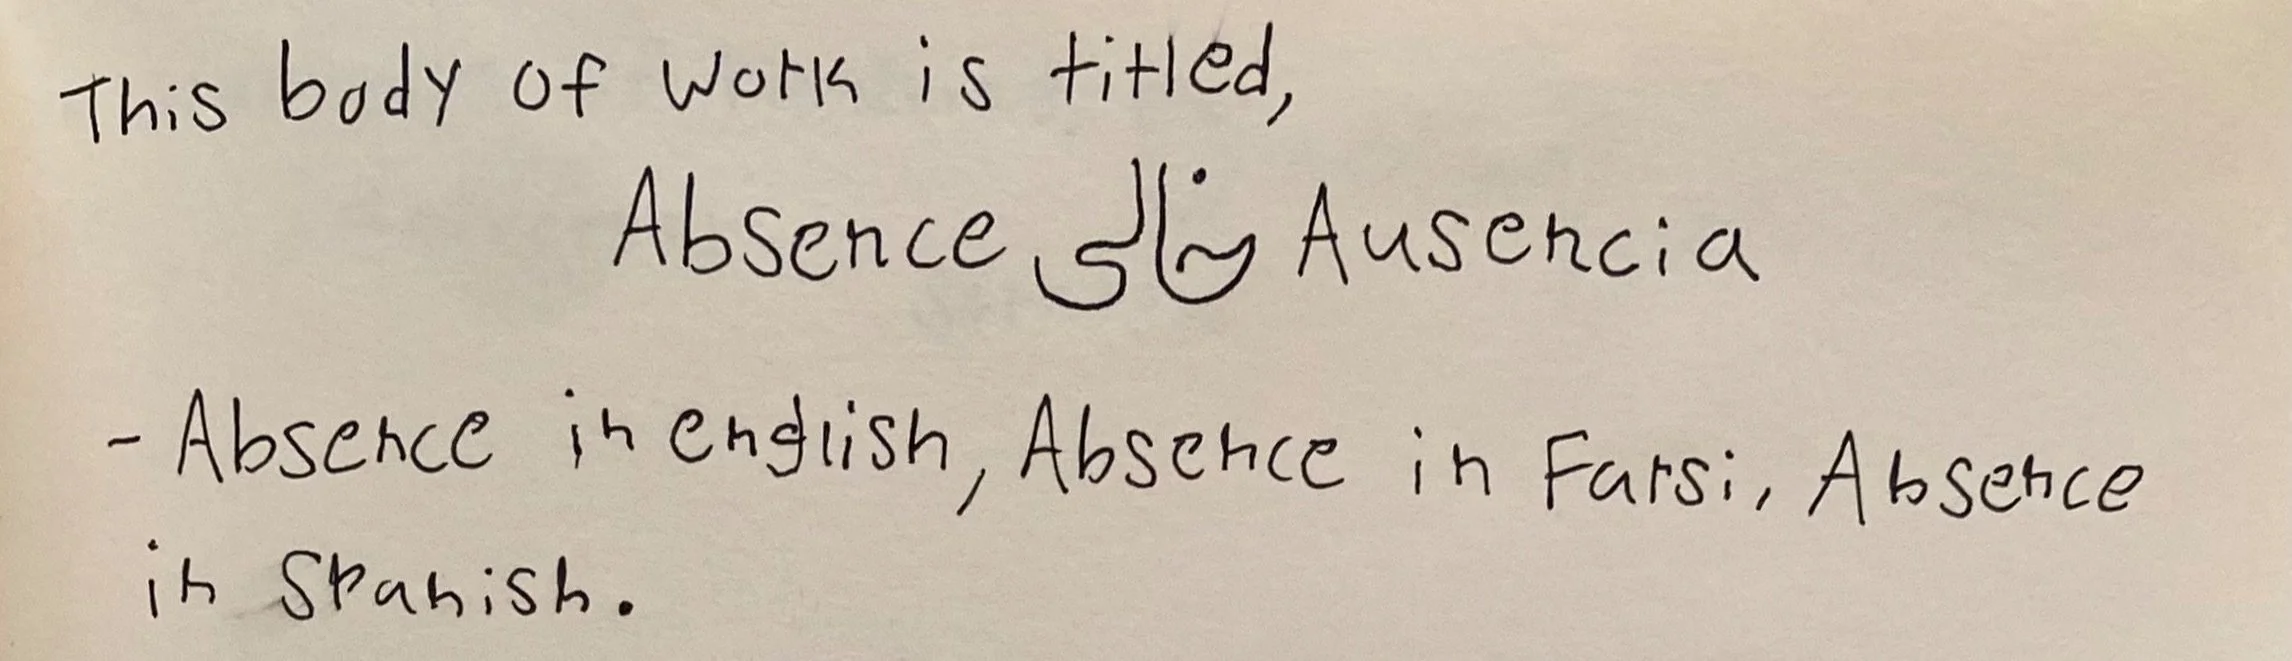 This body of work is titled,
Absence خالی Ausencia
- Absence in english, Absence in Farsi, Absence
in Spanish.